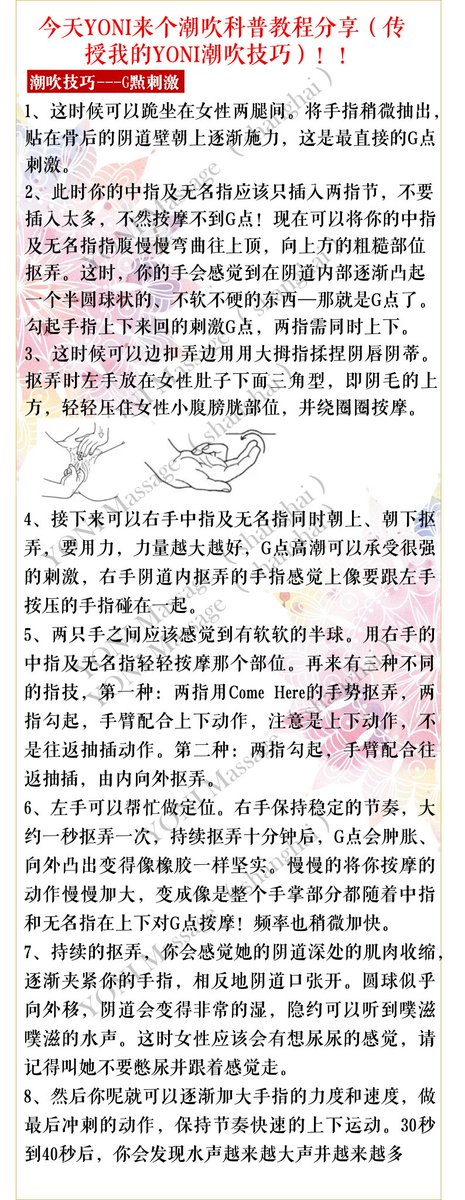 今天YONI来个潮吹科普教程分享（传
授我的YONI潮吹技巧）！！
潮吹技巧---G點刺激
1、这时候可以跪坐在女性两腿间。将手指稍微抽出，
贴在骨后的阴道壁朝上逐渐施力，这是最直接的G点
刺激。
2、此时你的中指及无名指应该只插入两指节，不要
插入太多，不然按摩不到G点！现在可以将你的中指
及无名指指腹慢慢弯曲往上顶，向上方的粗糙部位
抠弄。这时，你的手会感觉到在阴道内部逐渐凸起
一个半圆球状的，不软不硬的东西—那就是G点了。
勾起手指上下来回的刺激G点，两指需同时上下。
3、这时候可以边扣弄边用用大拇指揉捏阴唇阴蒂。
抠弄时左手放在女性肚子下面三角型，即阴毛的上
方，轻轻压住女性小腹膀胱部位，并绕圈圈按摩。
4、接下来可以右手中指及无名指同时朝上、朝下抠
弄，要用力，力量越大越好，G点高潮可以承受很强
的刺激，右手阴道内抠弄的手指感觉上像要跟左手
按压的手指碰在一起。
5、两只手之间应该感觉到有软软的半球。用右手的
中指及无名指轻轻按摩那个部位。再来有三种不同
的指技，第一种：两指用Come Here的手势抠弄，两
指勾起，手臂配合上下动作，注意是上下动作，不
是往返抽插动作。第二种：两指勾起，手臂配合往
返抽插，由内向外抠弄。
6、左手可以帮忙做定位。右手保持稳定的节奏，大
约一秒抠弄一次，持续抠弄十分钟后，G点会肿胀、
向外凸出变得像橡胶一样坚实。慢慢的将你按摩的
动作慢慢加大，变成像是整个手掌部分都随着中指
和无名指在上下对G点按摩！频率也稍微加快。
7、持续的抠弄，你会感觉她的阴道深处的肌肉收缩，
逐渐夹紧你的手指，相反地阴道口张开。圆球似乎
向外移，阴道会变得非常的湿，隐约可以听到噗滋
噗滋的水声。这时女性应该会有想尿尿的感觉，请
记得叫她不要憋尿并跟着感觉走。
8、然后你呢就可以逐渐加大手指的力度和速度，做
最后冲刺的动作，保持节奏快速的上下运动。30秒
到40秒后，你会发现水声越来越大声并越来越多
YONI Massage （shanghai）
YONI Massage （shanghai）
YONI Massage （shanghai）
YONI Massage （shanghai）